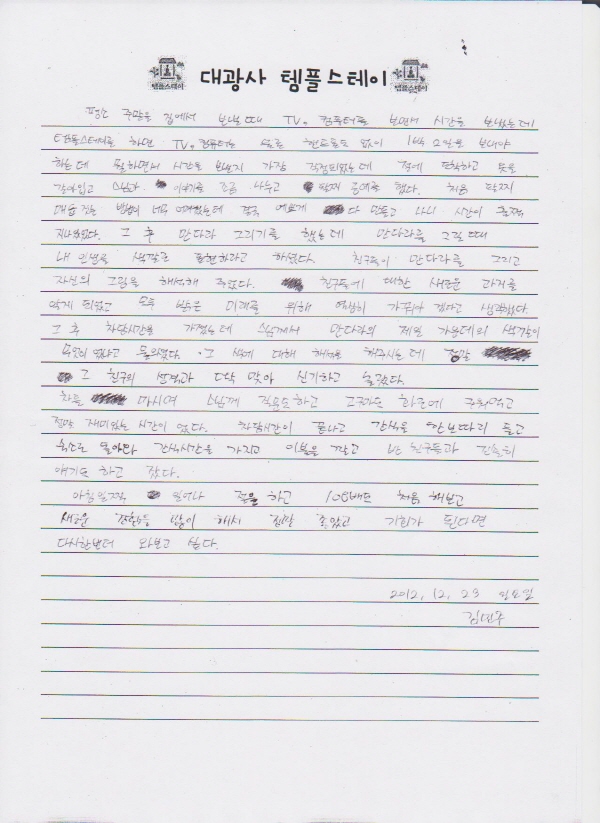 템플스테이 대광사 템플스테이 템플스테이
평소 주말을 집에서 보낼때 TV, 컴퓨터를 보면서 시간을 보냈는데
템플스테이를 하면 TV, 컴퓨터는 물론 핸드폰도 없이 1박 2일을 보내야
하는데 시간을 보낼지 가장 걱정되었는데 절에 도착하고 옷을
갈아입고 스님과 이야기를 조금 나누고 공예를 했다. 처음
접는 방법이 너무 어려웠는데 결국 예쁘게 다 만들고 나니 시간이 훌쩍
지나있었다. 그 후 만다라 그리기를 했는데 만다라를 그릴때
내 인생을 색깔로 표현하라고 하셨다. 친구들이 만다라를 그리고
자신의 그림을 해석해 주었다. 친구들에 대한 새로운 과거를
알게 되었고 모두 밝은 미래를 위해 열심히 가꿔야 겠다고 생각했다.
그 후 차담시간을 가졌는데 스님께서 만다라의 제일 가운데의 색깔이
무엇이 였냐고 물으셨다. 그 색에 대해 해석을 해주시는데 정말
그 친구의 성격과 딱 맞아 신기하고 놀랐다.
차를 마시며 스님께 질문도하고 고구마도 화로에 구워먹고
정말 재미있는 시간이 였다. 차담시간이 끝나고 간식을 한보따리 들고
숙소로 돌아와 간식시간을 가지고 이불을 깔고 친구들과 진솔히
얘기도 하고 잤다.
아침일찍 일어나 절을 하고 108배도 처음 해보고
새로운 경험을 많이 해서 정말 좋았고 기회가 된다면
다시한번더 와보고 싶다.
2012. 12. 23 일요일